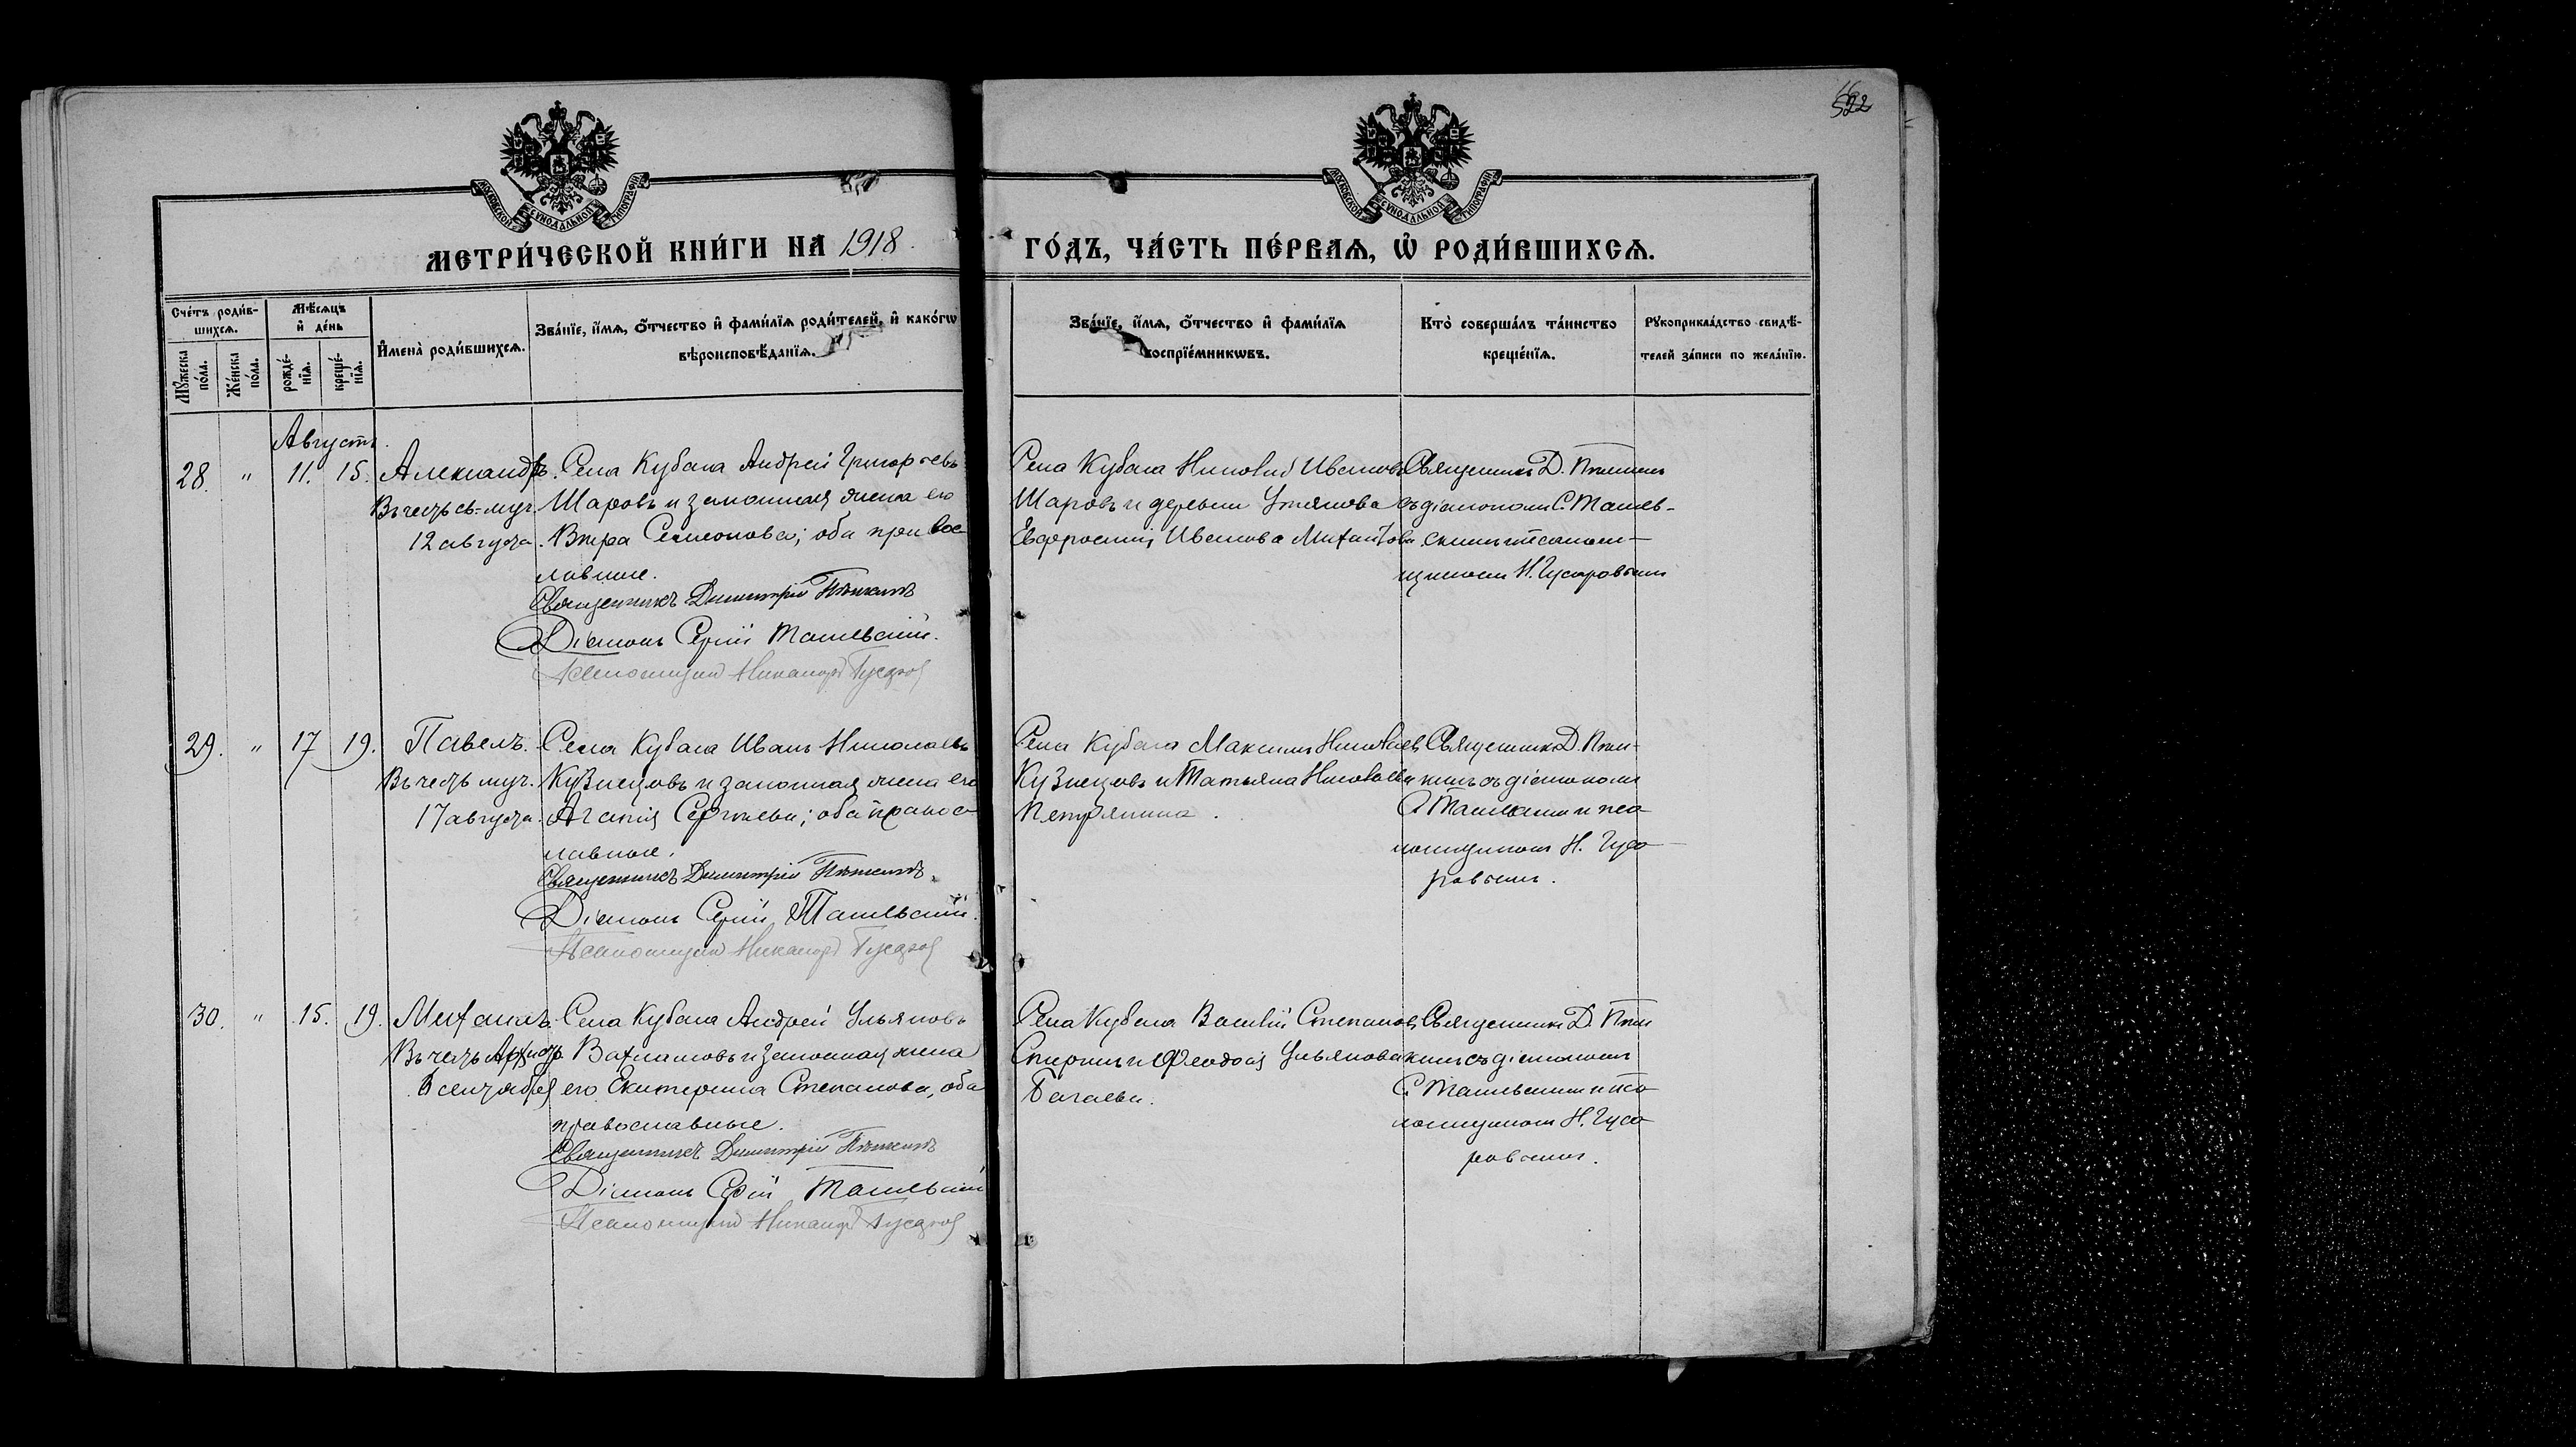 522
МОСКОВСКОЙ СѴНОДАЛЬНОЙ ТИПОГРАФІИ
МОСКОВСКОЙ СѴНОДАЛЬНОЙ ТИПОГРАФІИ
МЕТРИ́ЧЕСКОЙ КНИ́ГИ НА 1918.
ГО́ДЪ, ЧА́СТЬ ПЕ́РВАѦ, Ѡ҆ РОДИ́ВШИХСѦ.
Сче́тъ роди́в-
шихсѧ.
Мꙋ́жеска по́ла.
Же́нска по́ла.
Мѣ́сѧцъ
и҆ де́нь
рожде́-
нїѧ.
креще́-
нїѧ.
И҆мена̀ роди́вшихсѧ.
Зва́нїе, и҆́мѧ, ѻ҆́тчество и҆ фами́лїѧ роди́телей, и҆ како́гѡ
вѣроисповѣ́данїѧ.
Зва́нїе, и҆́мѧ, ѻ҆́тчество и҆ фами́лїѧ
воспрїе́мникѡвъ.
Кто̀ соверша́лъ та́инство
креще́нїѧ.
Рꙋкоприкла́дство свидѣ́-
телей за́писи по жела́нїю.
Августъ.
28. " 11. 15. Александръ.
Въ честь св.-муч.
12 августа.
Села Кубаса Андрей Григорьевъ
Шаровъ и законная жена его
Вѣра Семенова; оба правос-
лавные.
Священникъ Димитрій Пѣнкинъ
Діаконъ Сергій
Псаломщикъ Никаноръ Гусаров
Села Кубаса Николай Ивановъ
Шаровъ и деревни
Евфросинія Иванова
Священникъ Д.
съ діакономъ С.
скимъ и псалом-
щикомъ Н. Гусаровымъ
29. " 17 19. Павелъ.
Въ честь муч.
17 августа.
Села Кубаса Иванъ Николаевъ
Кузнецовъ и законная жена его
Агапія Сергѣева; оба правос-
лавные.
Священникъ Димитрій Пѣнкинъ.
Діаконъ Сергій
Псаломщикъ Никаноръ Гусаров
Села Кубаса Максимъ Николаевъ
Кузнецовъ и Татьяна Николаева
Петрянина.
Священникъ Д. Пѣн-
кинъ съ діакономъ
С. и пса-
ломщикомъ Н. Гуса-
ровымъ.
30. " 15. 19. Михаилъ.
Въ честь Архистр.
6 сентября
Села Кубаса Андрей Ульяновъ
Вахламовъ и законная жена
его Екатерина Степанова, оба
православные.
Священникъ Димитрій Пѣнкинъ
Діаконъ Сергій
Псаломщикъ Никаноръ Гусаров
Села Кубаса Василій Степановъ
Спиринъ и Ѳеодосія Ульянова
Багаева.
Священникъ Д. Пѣн-
кинъ съ діакономъ
С. и пса-
ломщикомъ Н. Гуса-
ровымъ.